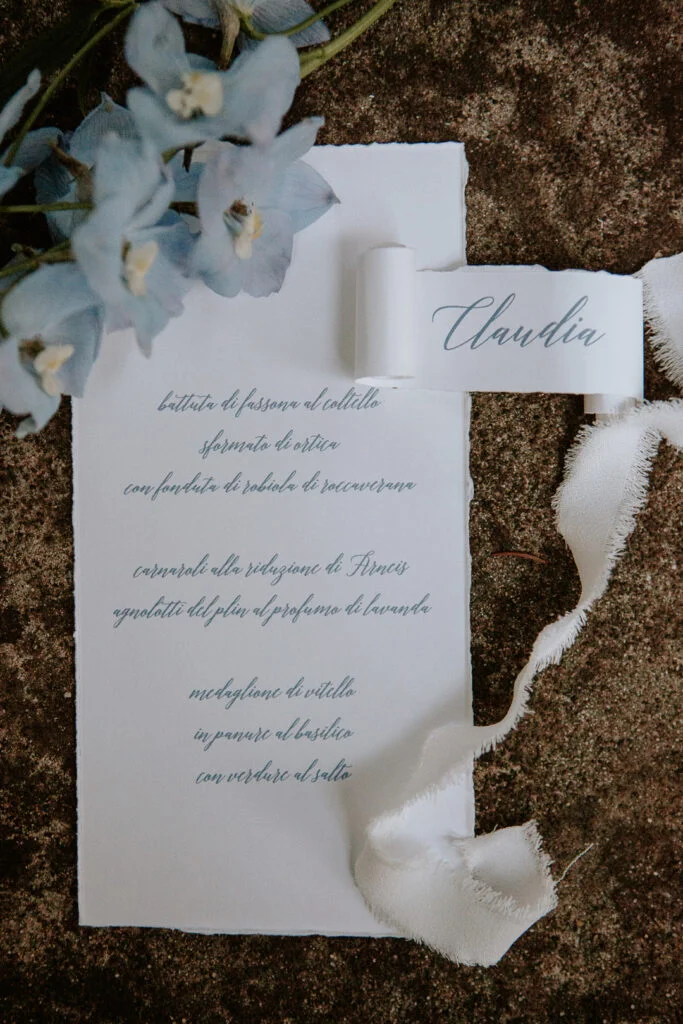 Claudia
battuta di fassona al coltello
sformato di ortica
con fonduta di robiola di roccaverana
carnaroli alla riduzione di Arneis
agnolotti del plin al profumo di lavanda
medaglione di vitello
in panure al basilico
con verdure al salto